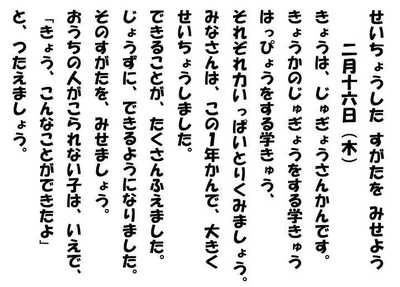 せいちょうした すがたを みせよう
二月十六日（木）
きょうは、じゅぎょうさんかんです。
きょうかのじゅぎょうをする学きゅう
はっぴょうをする学きゅう、
それぞれ力いっぱいとりくみましょう。
みなさんは、この1年かんで、大きく
せいちょうしました。
できることが、たくさんふえました。
じょうずに、できるようになりました。
そのすがたを、みせましょう。
おうちの人がこられない子は、いえで、
「きょう、こんなことができたよ」
と、つたえましょう。